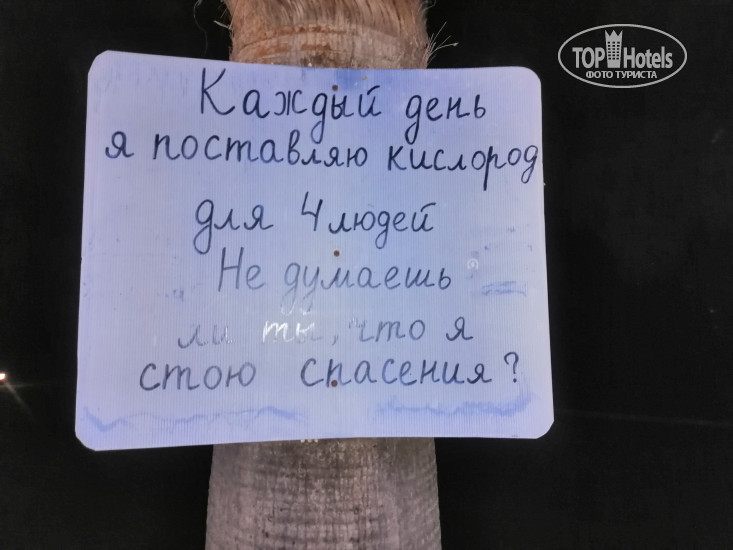 TOP Hotels
ФОТО ТУРИСТА
Каждый день
я поставляю кислород
для 4 людей
Не думаешь
ли ты, что я
стою спасения?